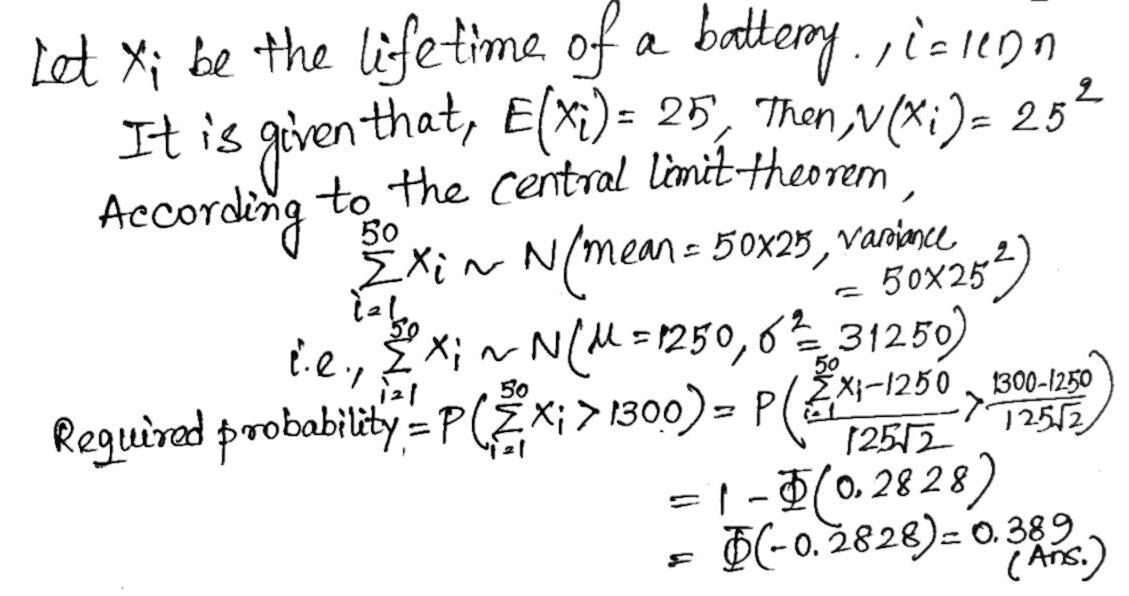 Let Xi be the lifetime of a battery., i=1(1)n
It is given that, E(Xi)= 25, Then, V(Xi)= 25²
According to the central limit theorem,
∑_{i=1}^{50} Xi ~ N(mean = 50×25, variance = 50×25²)
i.e., ∑_{i=1}^{50} Xi ~ N(μ=1250, σ²= 31250)
Required probability = P(∑_{i=1}^{50} Xi > 1300) = P((∑_{i=1}^{50} Xi-1250)/(125√2) > (1300-1250)/(125√2))
= 1 - Φ(0.2828)
= Φ(-0.2828)= 0.389
(Ans.)